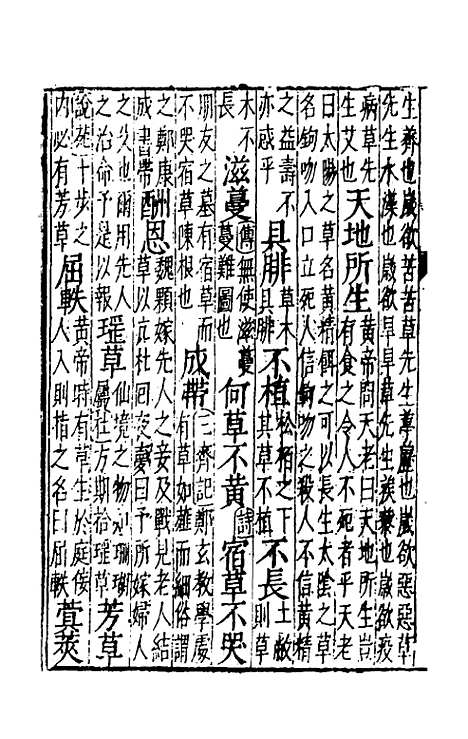 生薺也歲欲苦苦草先生葶藶也歲欲惡惡草
先生水藻也歲欲旱旱草先生蒺藜也歲欲疫
病草先生艾也天地所生黃帝問天老曰天地所生豈有食之令人不死者乎天老
曰太陽之草名黃精餌之可以長生太陰之草
名鉤吻入口立死人信鉤吻之殺人不信黃精
之益壽不亦惑乎具腓草木具腓不植松栢之下其草不植不長土敝則草
木不長滋蔓傳無使滋蔓蔓難圖也何草不黃詩宿草不哭
朋友之墓有宿草而不哭宿草陳根也成帶三齊記鄭玄教學處有草如薤而細俗謂
之鄭康成書帶酬恩魏顆嫁先人之妾及戰見老人結草以亢杜回夜夢曰予所嫁婦人
之父也爾用先人之治命予是以報瑤草仙境之物如珊瑚屬杜方期拾瑤草芳草
說苑十步之內必有芳草屈軼黃帝時有草生於庭佞人入則指之名曰屈軼蓂莢